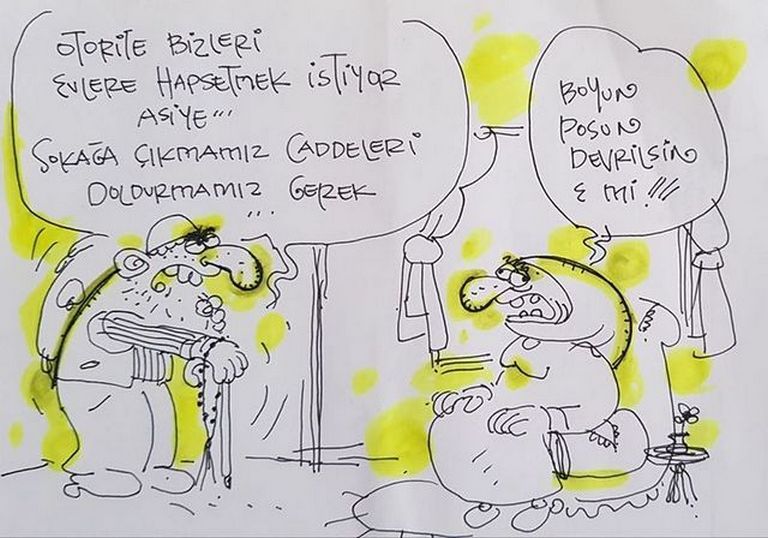 OTORİTE BİZLERİ
EVLERE HAPSETMEK İSTİYOR
ASİYE...
SOKAĞA ÇIKMAMIZ CADDELERİ
DOLDURMAMIZ GEREK
...
BOYUN
POSUN
DEVRİLSİN
E Mİ!!!